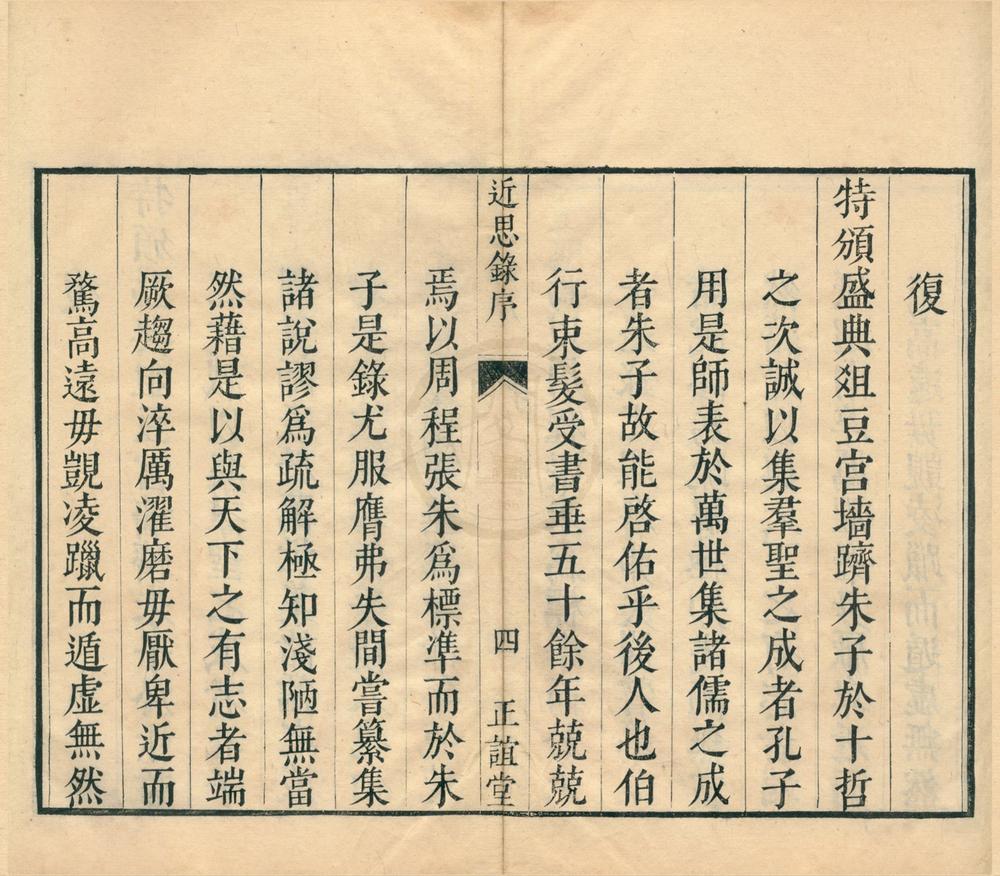 復
特頒盛典俎豆宮墻躋朱子於十哲
之次誠以集羣聖之成者孔子
用是師表於萬世集諸儒之成
者朱子故能啓佑乎後人也伯
行束髮受書垂五十餘年兢兢
近思錄序 四 正誼堂
焉以周程張朱爲標準而於朱
子是錄尤服膺弗失間嘗纂集
諸說謬爲疏解極知淺陋無當
然藉是以與天下之有志者端
厥趨向淬厲濯磨毋厭卑近而
騖高遠毋覬凌躐而遁虛無然